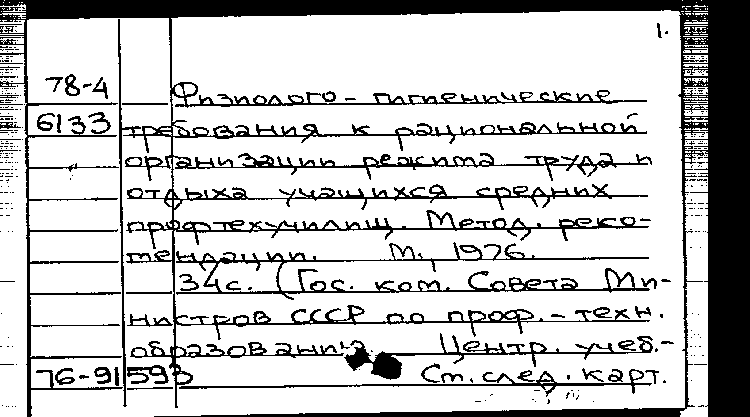 1.
78-4 Физиолого-гигиенические
6133 требования к рациональной
организации режима труда и
отдыха учащихся средних
профтехучилищ. Метод. реко-
мендации. М., 1976.
34с. (Гос. ком. Совета Ми-
нистров СССР по проф.-техн.
образованию. Центр. учеб.-
76-91593 См. след. карт.